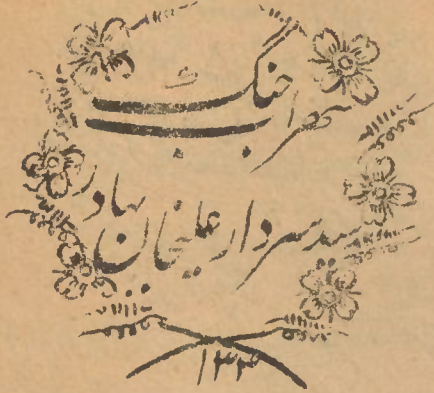 سهراب جنگ
سید سردار علیخان بهادر